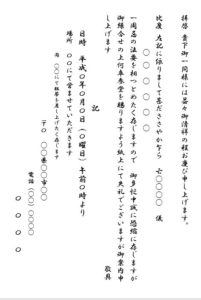 拝啓 貴下御一同様には益々御清祥の程お慶び申し上げます。
此度 左記に依りまして甚だささやかなら 亡〇〇〇〇 儀
〇〇〇〇〇
一周忌の法要を相つとめたく存じますので 御多忙中誠に恐縮に存じますが
御繰合せの上何卒参堂を賜りますよう紙上にて失礼でございますが御案内申
し上げます
敬具
記
日時 平成〇年〇月〇日（〇曜日）午前〇時より
場所 〇〇にて営ませていただきます
尚 〇〇にて粗飯を差し上げたく存じます
〒〇 〇〇県〇〇市〇〇
電話（〇〇）〇〇〇〇
〇〇〇〇